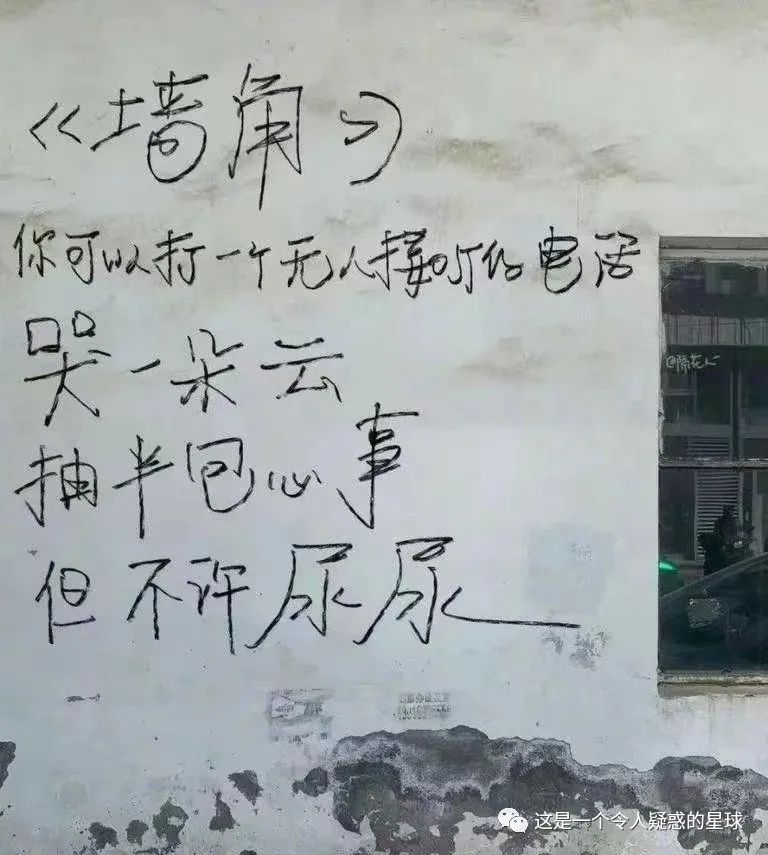 《墙角》
你可以打一个无人接听的电话
哭一朵云
@隔花人
抽半包心事
但不许尿尿
这是一个令人疑惑的星球